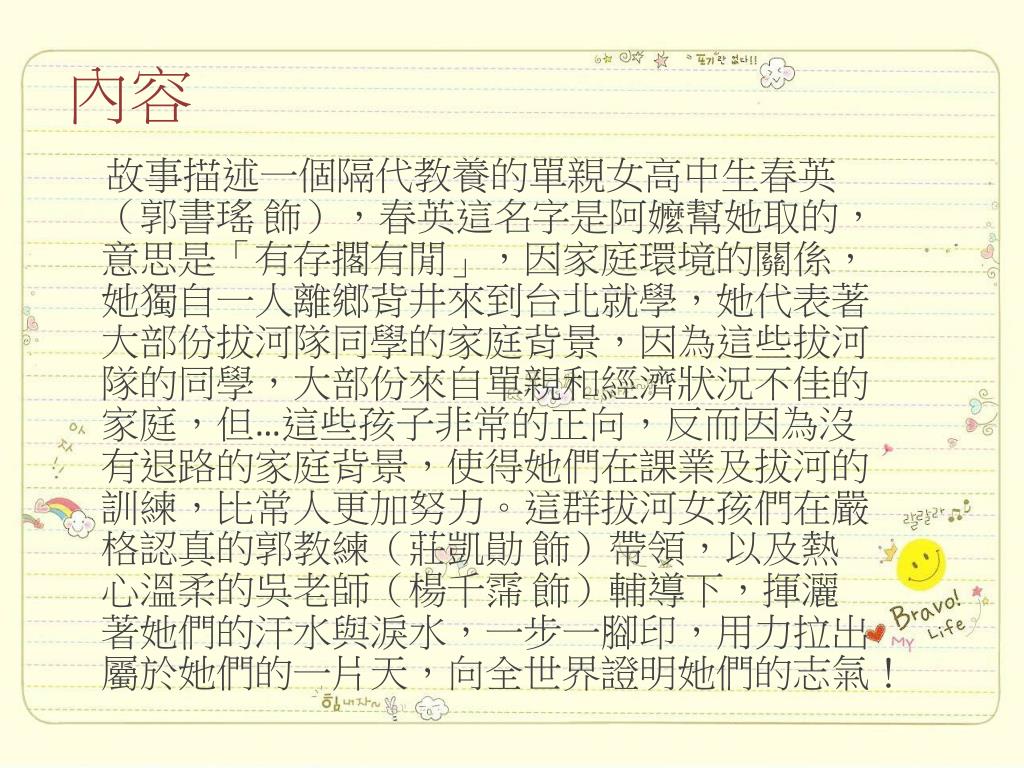 포기란 없다!!
內容
故事描述一個隔代教養的單親女高中生春英
（郭書瑤 飾），春英這名字是阿嬤幫她取的，
意思是「有存擱有閒」，因家庭環境的關係，
她獨自一人離鄉背井來到台北就學，她代表著
大部份拔河隊同學的家庭背景，因為這些拔河
隊的同學，大部份來自單親和經濟狀況不佳的
家庭，但…這些孩子非常的正向，反而因為沒
有退路的家庭背景，使得她們在課業及拔河的
訓練，比常人更加努力。這群拔河女孩們在嚴
格認真的郭教練（莊凱勛 飾）帶領，以及熱
心溫柔的吳老師（楊千霈 飾）輔導下，揮灑
著她們的汗水與淚水，一步一腳印，用力拉出
屬於她們的一片天，向全世界證明她們的志氣！
아
자
!!
랄랄라
Bravo!
MY Life
힘내자~